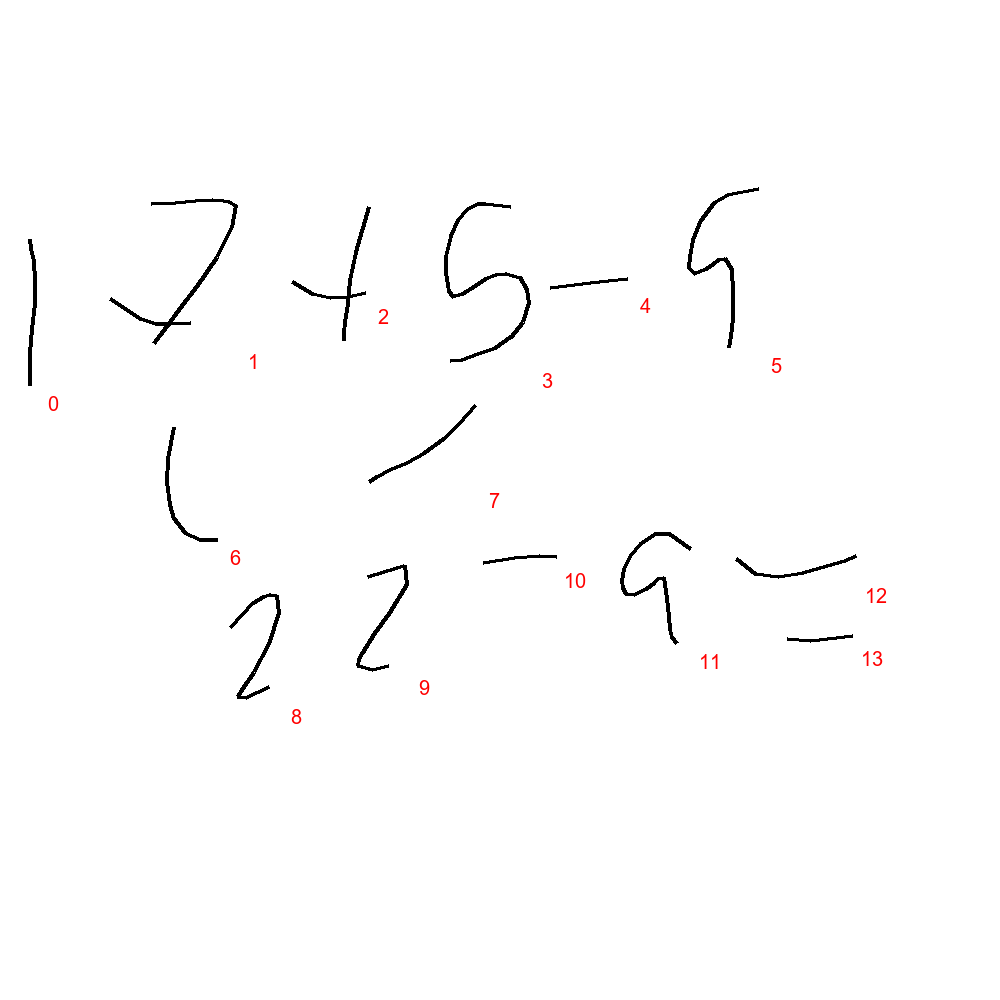 17+5-9
0 1 2 3 4 5
( /
6 7
22-9=
8 9 10 11 12 13